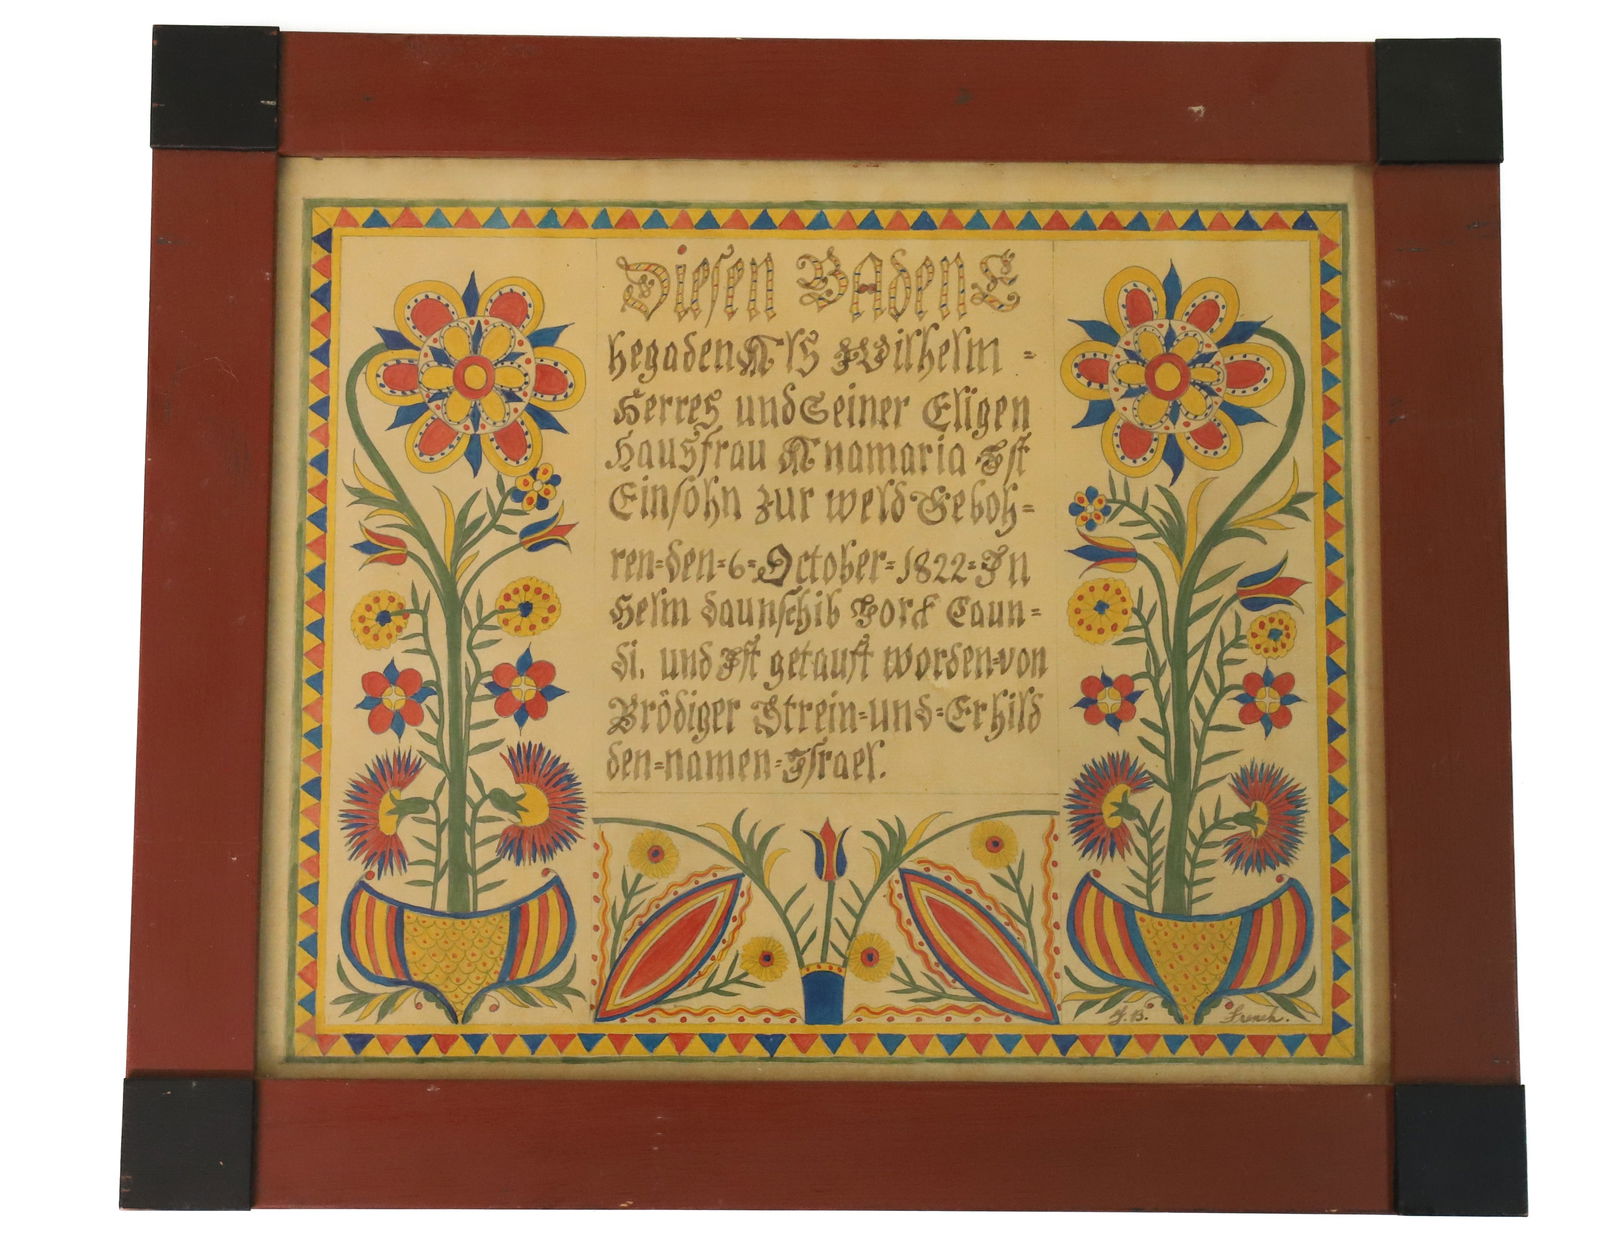 Diesen Baden E
hegaden Als Wilhelm =
Herres und Seiner Eligen
Hausfrau Anamaria Ist
Ein sohn zur weld Geboh=
ren=den=6=October=1822=In
Helm daunschib York Caun=
di. und Ist getauft worden=von
Brödiger Strein=und=Erhild
den=namen=Israel.
J. B. French.